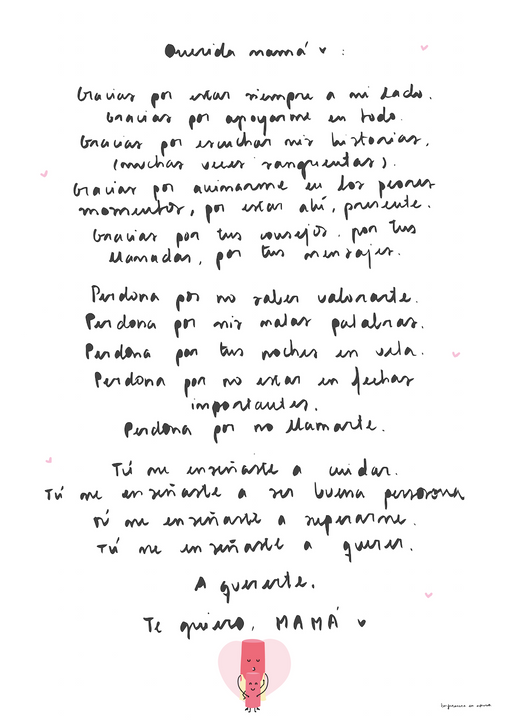 Querida mamá ♥ :
Gracias por estar siempre a mi lado.
Gracias por apoyarme en todo.
Gracias por escuchar mis historias,
(muchas veces sangrientas).
Gracias por animarme en los peores
momentos, por estar ahí, presente.
Gracias por tus consejos, por tus
llamadas, por tus mensajes.
Perdona por no saber valorarte.
Perdona por mis malas palabras.
Perdona por tus noches en vela.
Perdona por no estar en fechas
importantes.
Perdona por no llamarte.
Tú me enseñaste a cuidar.
Tú me enseñaste a ser buena persona
Tú me enseñaste a superarme.
Tú me enseñaste a querer.
A quererte.
Te quiero, MAMÁ ♥